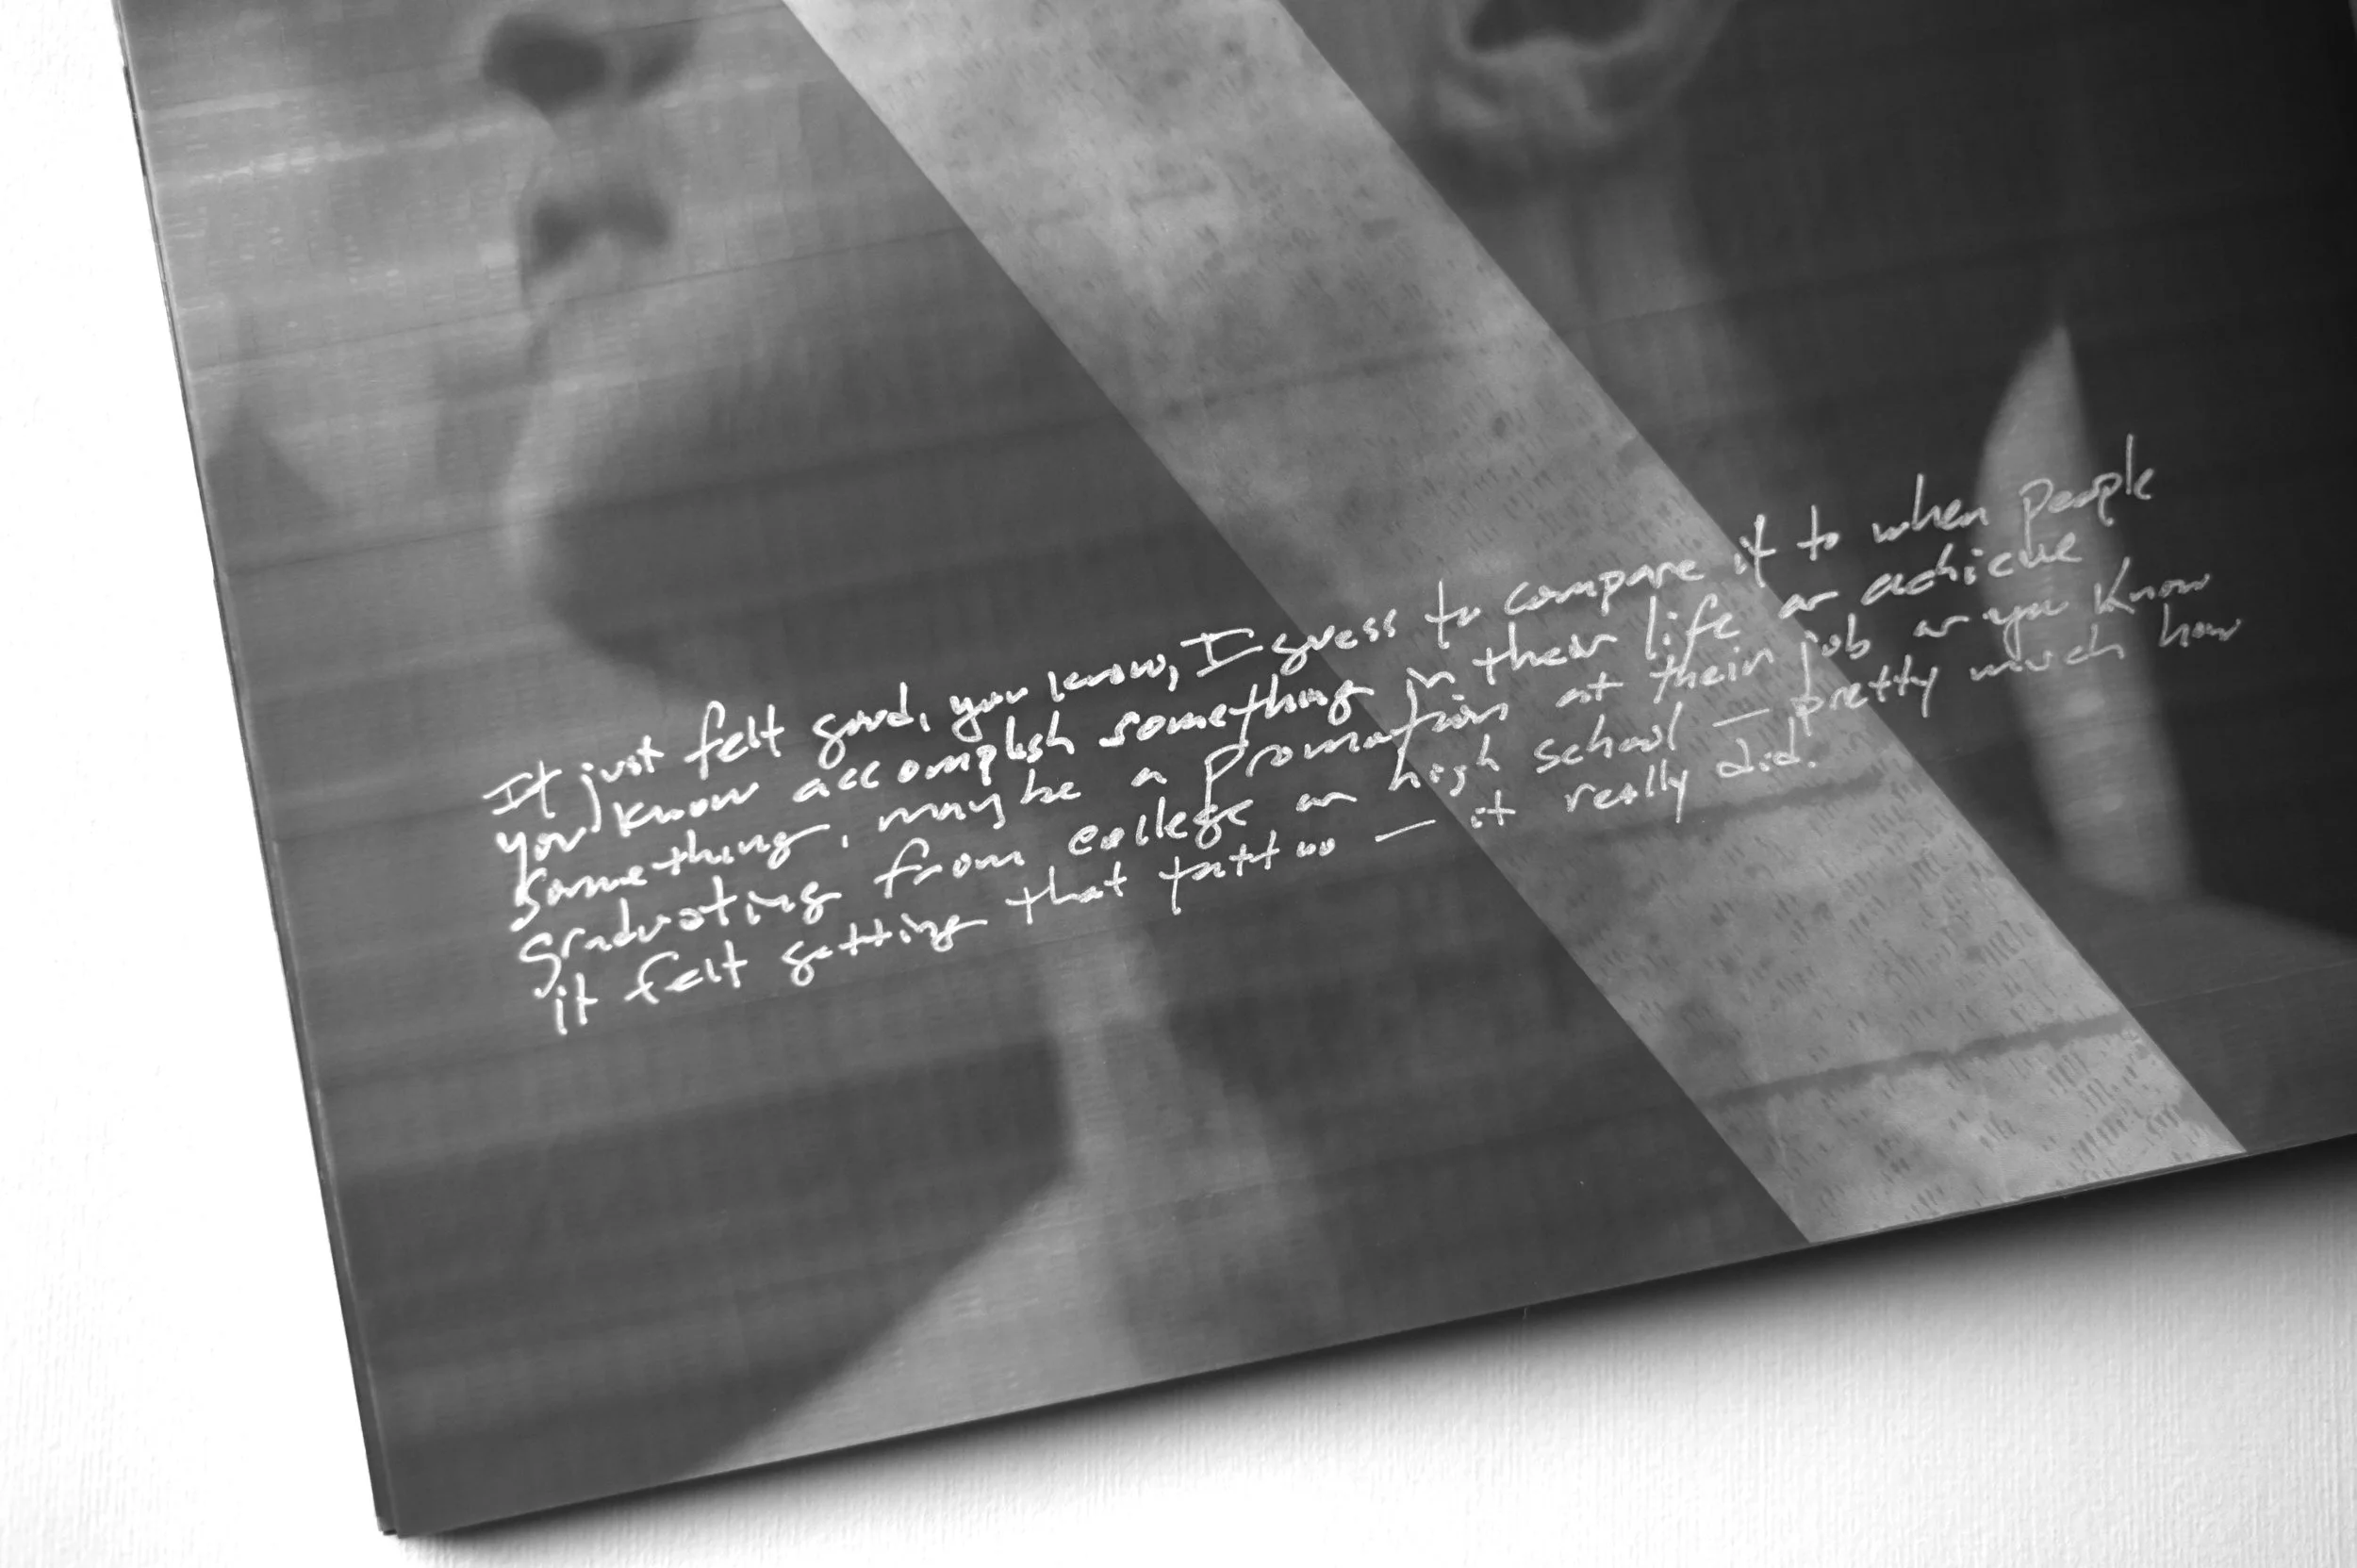 It just felt good, you know, I guess to compare it to when people
you know accomplish something in their life or achieve
something, maybe a promotion at their job or you know
graduating from college or high school — pretty much how
it felt getting that tattoo — it really did.